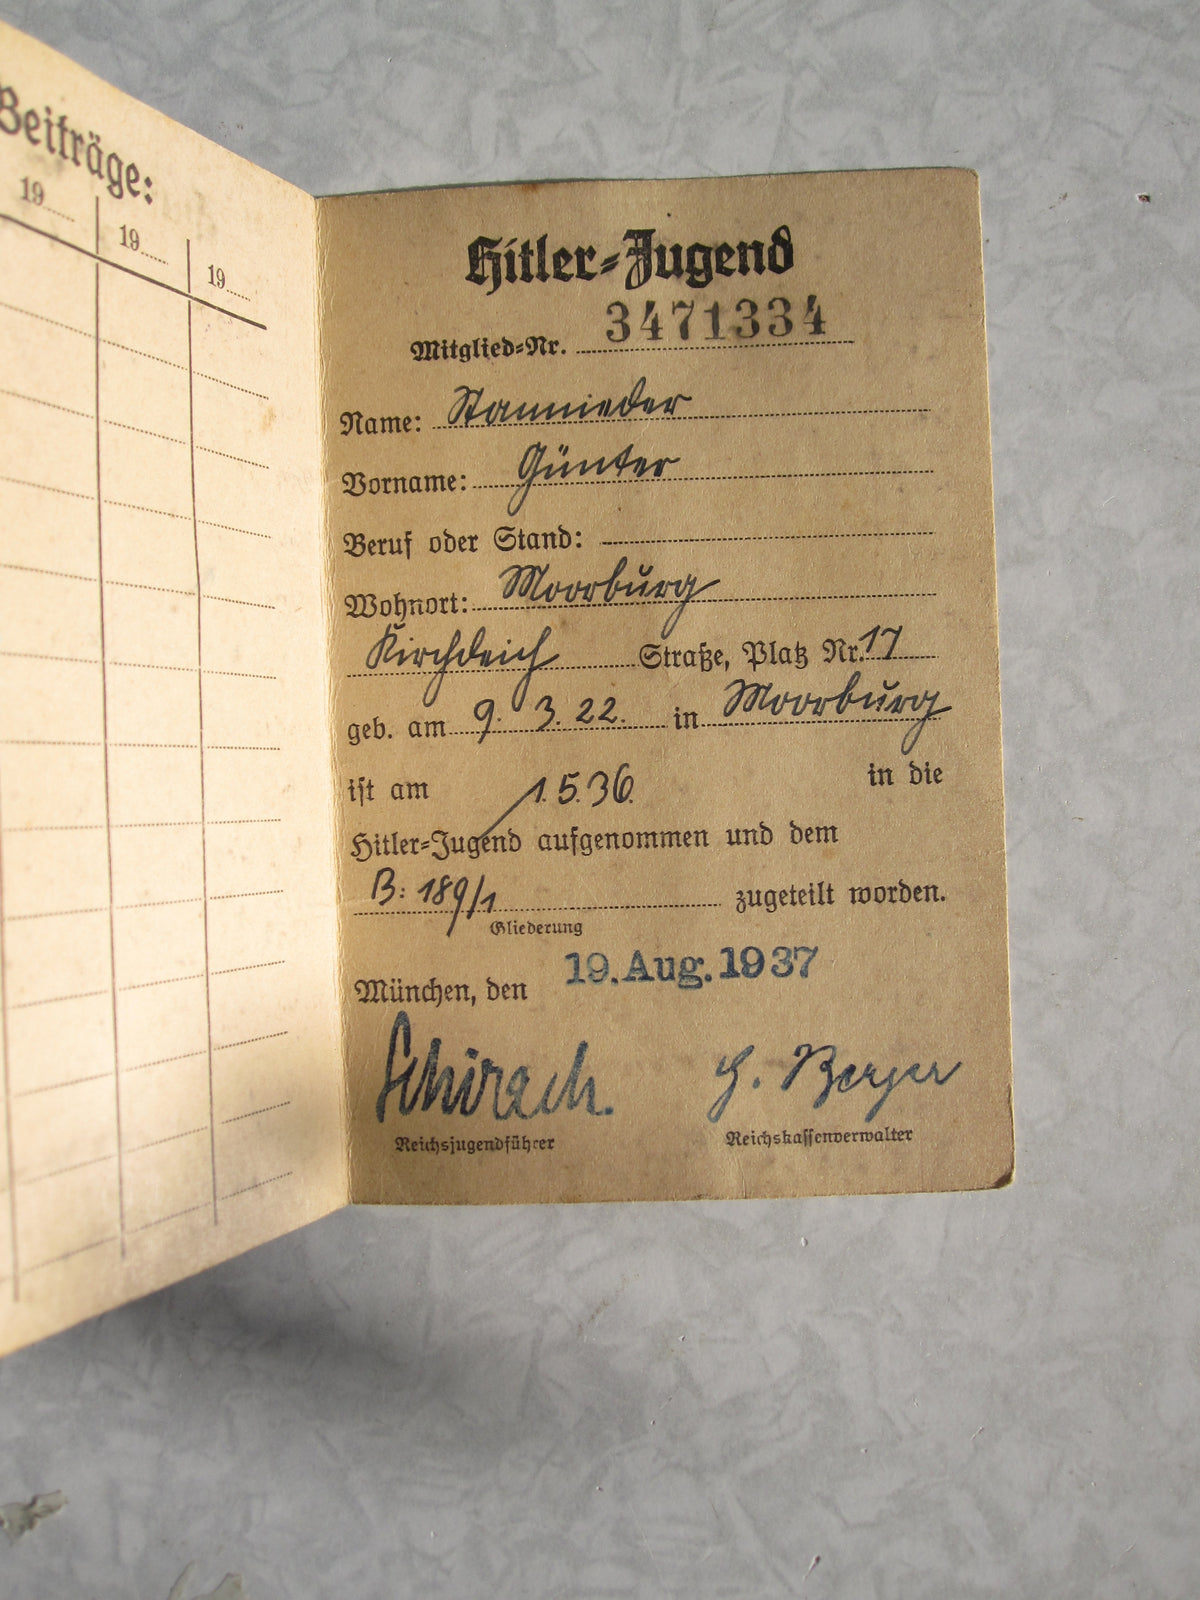 Beiträge:
19..... 19..... 19.....
Hitler-Jugend
Mitglied-Nr. 3471334
Name: Stamnieder
Vorname: Günter
Beruf oder Stand:
Wohnort: Moorburg
Kirchdeich Straße, Platz Nr. 17
geb. am 9. 3. 22. in Moorburg
ist am 1.5.36. in die
Hitler-Jugend aufgenommen und dem
B: 189/1 zugeteilt worden.
Gliederung
München, den 19. Aug. 1937
Schirach. G. Berger
Reichsjugendführer Reichskassenverwalter